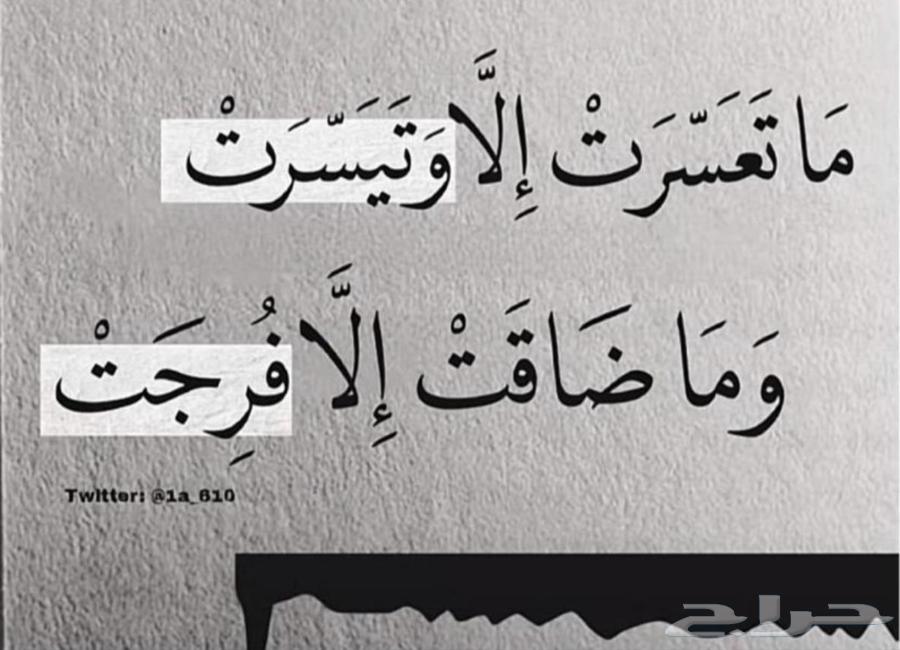 مَا تَعَسَّرَتْ إِلَّا وَتَيَسَّرَتْ
وَمَا ضَاقَتْ إِلَّا فُرِجَتْ
Twitter: @1a_610
حراج